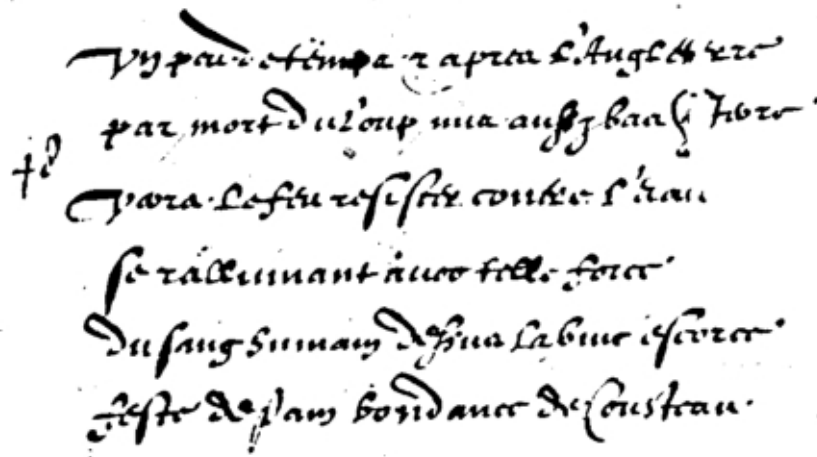 Vn peu de temps apres L'Angleterre
par mort du L'oup mis aussy bas q terre
Verra Le feu resister contre L'eau
se rallumant auec telle force
du sang humain dessus escorce
feste de pain bondance de Cousteau